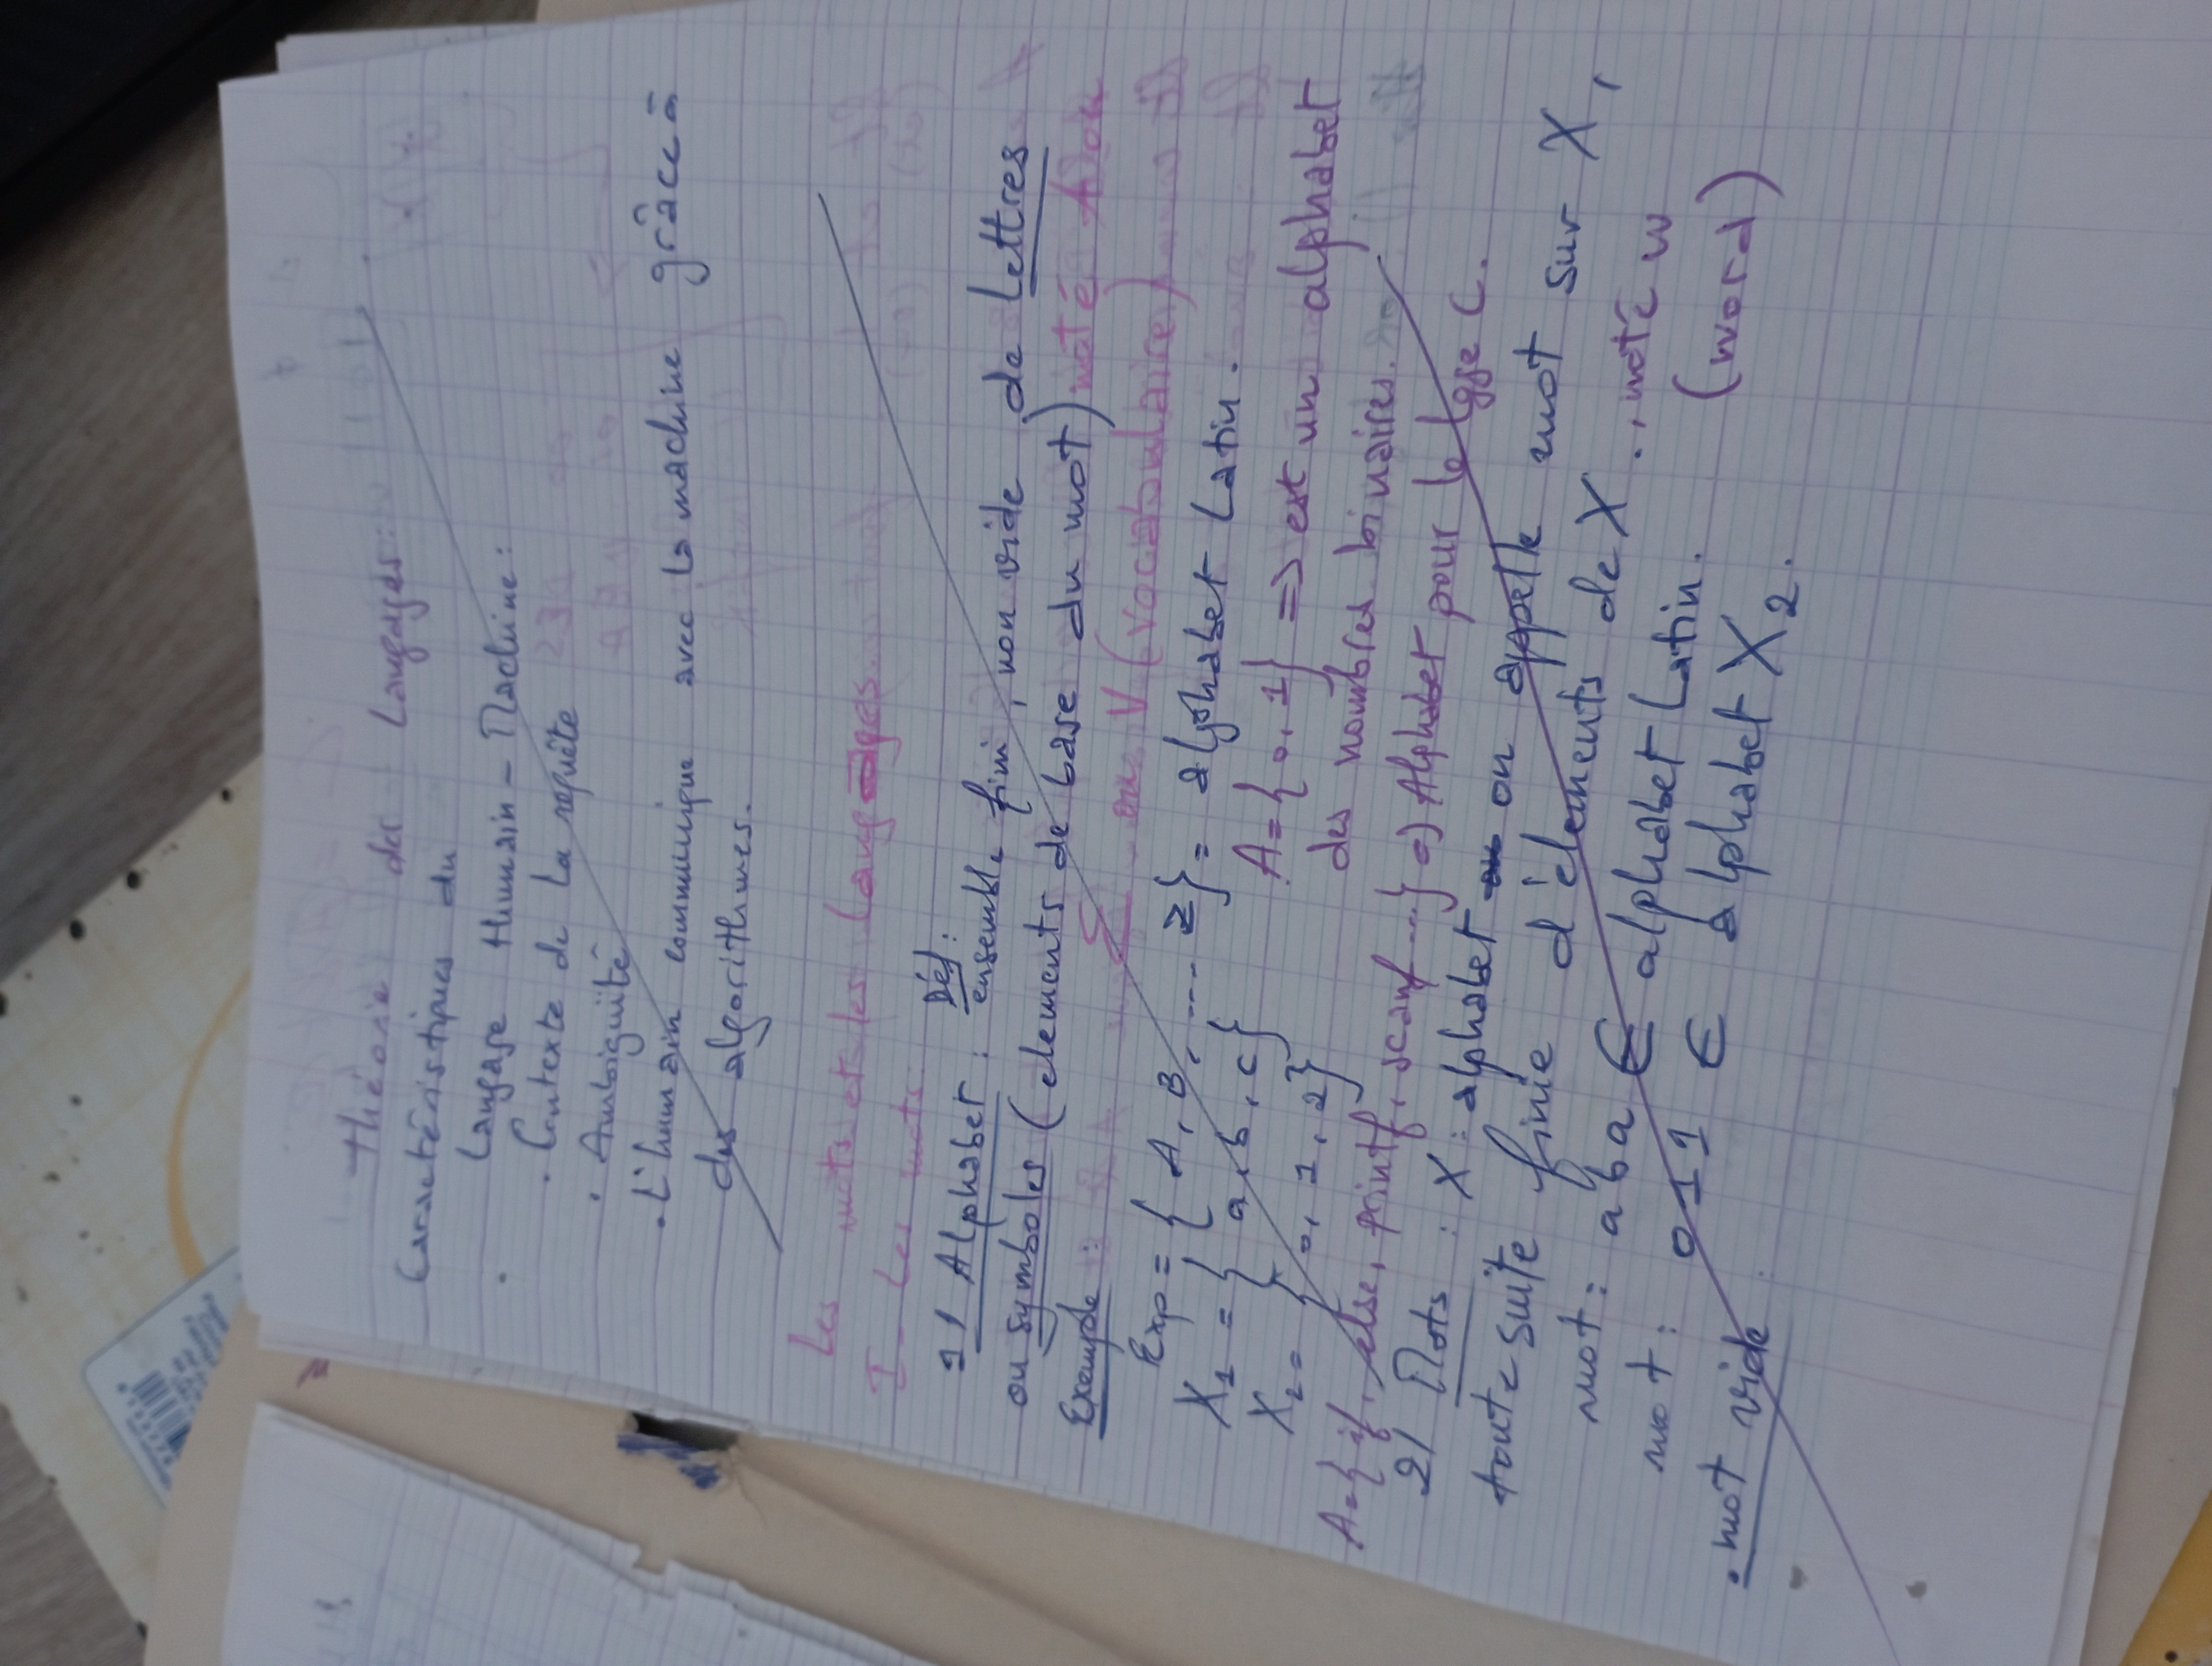 Théorie des Langages:
Caractéristiques du
Langage Humain - Machine:
. Contexte de la requête
. Ambiguïté
. L'humain communique avec la machine grâce à
des algorithmes.
Les mots et les Langages.
I - Les mots:
1/ Alphabet: Déf:
ensemble fini, non vide de lettres
ou symboles (élements de base du mot) noté A ou
Σ ou V (vocabulaire)
Exemple:
Exp = { A, B, ... Z} = alphabet Latin.
X1 = { a, b, c}
X2 = { 0, 1, 2}
A = {0, 1} => est un alphabet
des nombres binaires.
A = { if, else, printf, scanf ...} => Alphabet pour le lgge C.
2/ Mots : X : alphabet on appelle mot sur X,
toute suite finie d'élements de X., noté w
(word)
mot: aba ∈ alphabet Latin.
mot: 011 ∈ alphabet X2.
. mot vide :